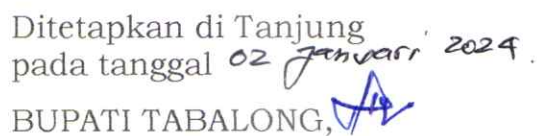 Ditetapkan di Tanjung
pada tanggal 02 Januari 2024.
BUPATI TABALONG,